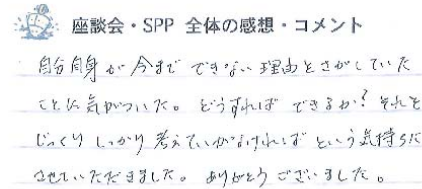 座談会・SPP 全体の感想・コメント
自分自身が今までできない理由をさがしていた
ことに気がついた。どうすればできるか？それを
じっくりしっかり考えていかなければという気持ちに
させていただきました。ありがとうございました。